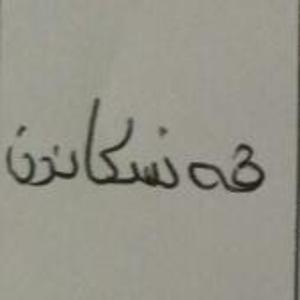 هەنسکاندن